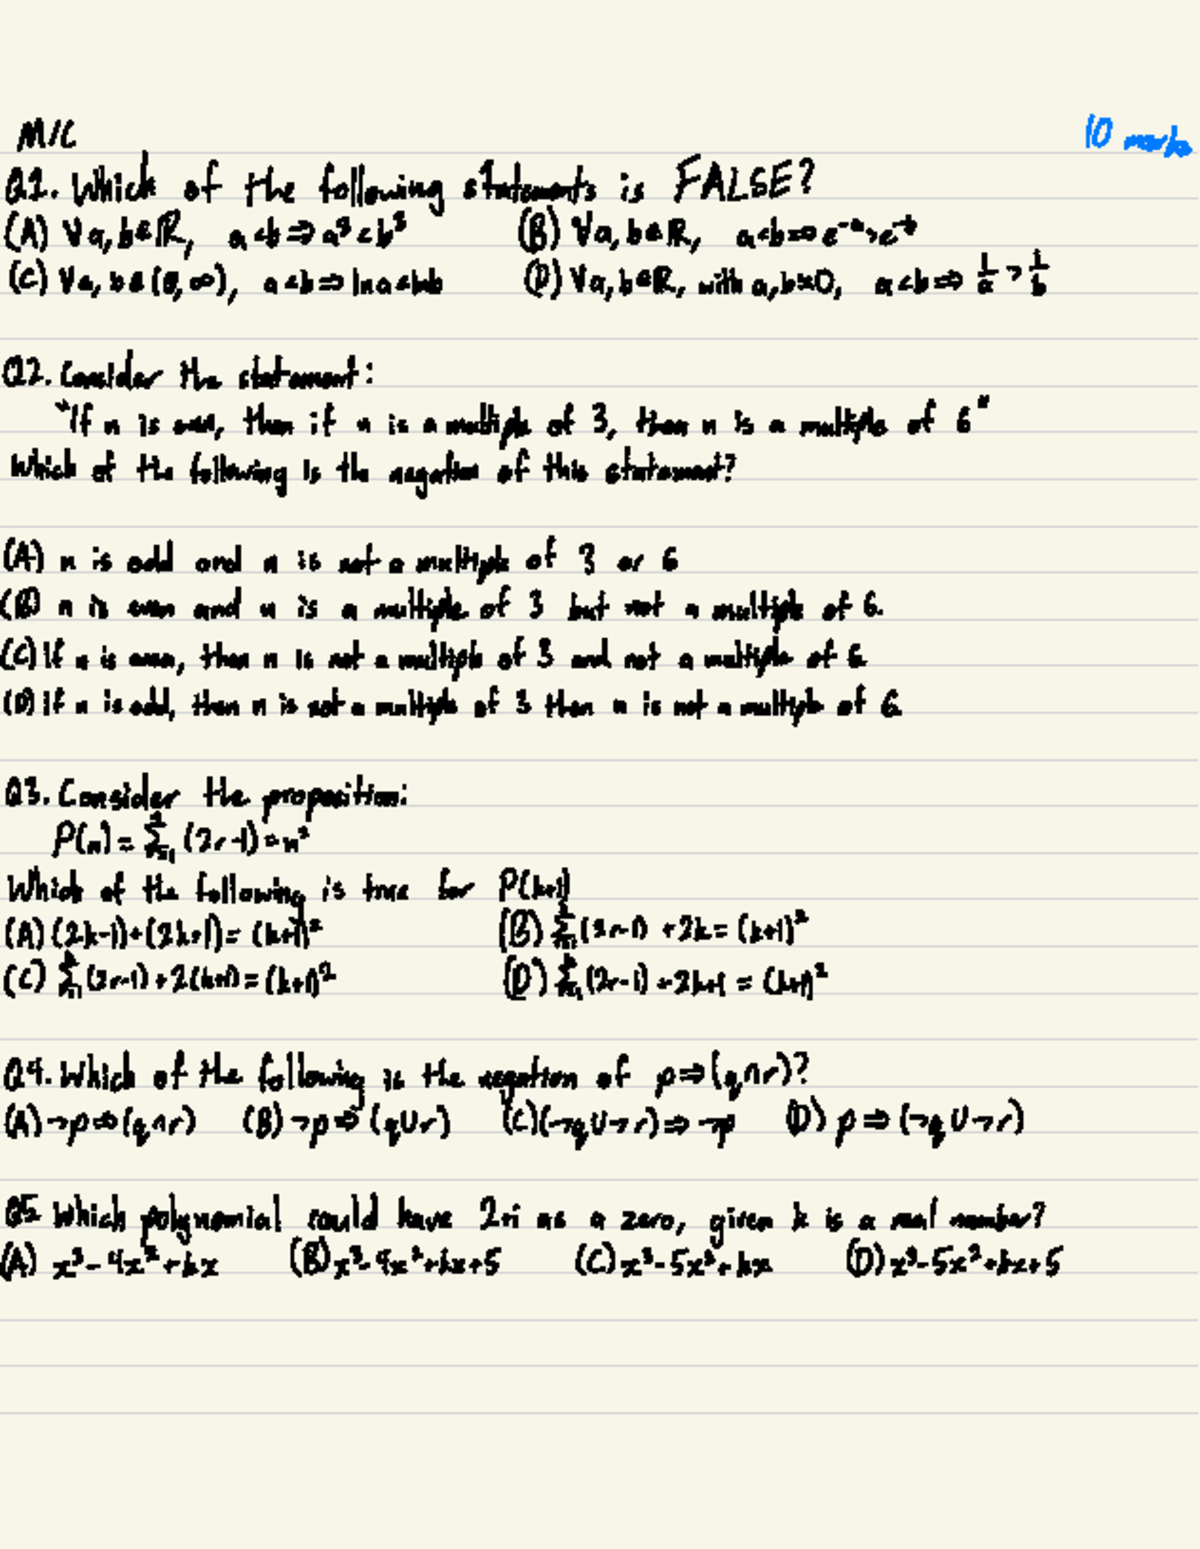 M/C
10 marks
Q1. Which of the following statements is FALSE?
(A) ∀a, b∈ℝ, a<b⇒a³<b³ (B) ∀a, b∈ℝ, a<b⇒e⁻ᵃ>e⁻ᵇ
(C) ∀a, b∈(0,∞), a<b⇒ln a<ln b (D) ∀a, b∈ℝ, with a,b≠0, a<b⇒ 1/a > 1/b
Q2. Consider the statement:
"If n is even, then if n is a multiple of 3, then n is a multiple of 6"
Which of the following is the negation of this statement?
(A) n is odd and n is not a multiple of 3 or 6
(B) n is even and n is a multiple of 3 but not a multiple of 6.
(C) If n is even, then n is not a multiple of 3 and not a multiple of 6
(D) If n is odd, then n is not a multiple of 3 then n is not a multiple of 6
Q3. Consider the proposition:
P(n) = Σ (2r-1) = n²
Which of the following is true for P(k+1)
(A) (2k-1)+(2k+1) = (k+1)² (B) Σ (2r-1) + 2k = (k+1)²
(C) Σ (2r-1) + 2(k+1) = (k+1)² (D) Σ (2r-1) + 2k+1 = (k+1)²
Q4. Which of the following is the negation of p⇒(q∩r)?
(A) ¬p⇒(q∩r) (B) ¬p⇒(q∪r) (C) (¬q∪¬r)⇒¬p (D) p⇒(¬q∪¬r)
Q5 Which polynomial could have 2+i as a zero, given k is a real number?
(A) x³-4x²+kx (B) x³-4x²+kx+5 (C) x³-5x²+kx (D) x³-5x²+kx+5